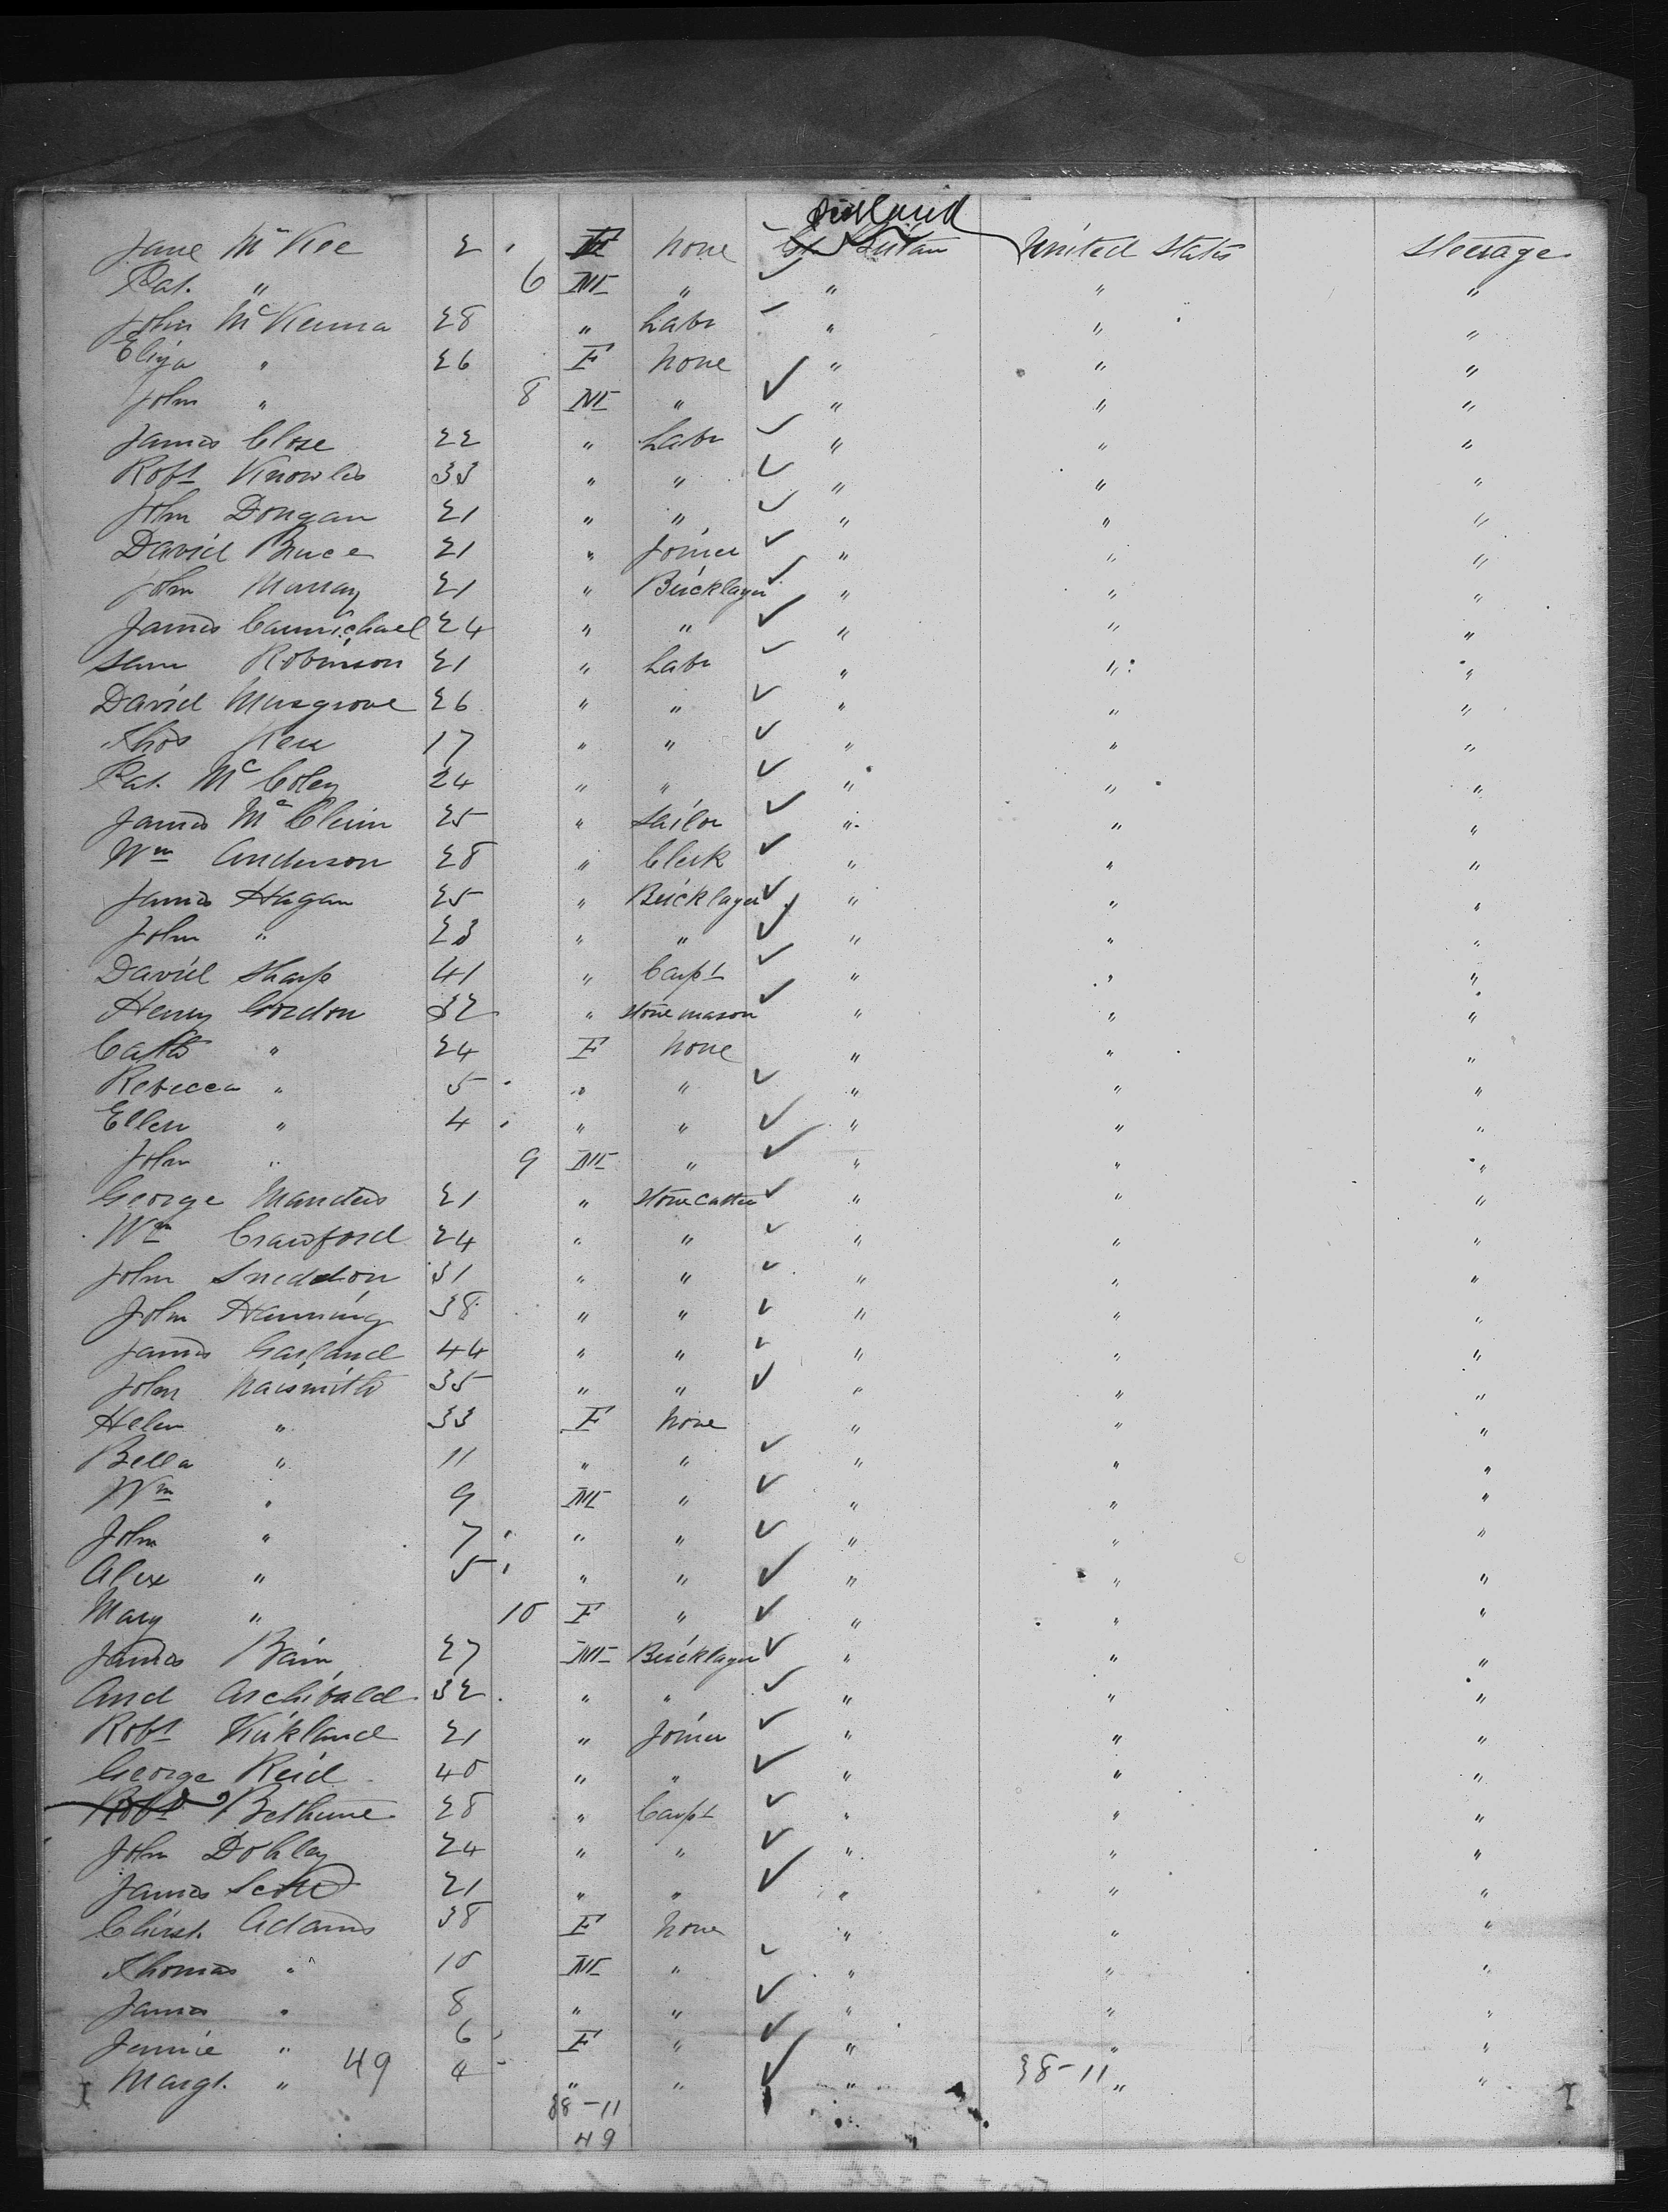 Ireland
Jane McKee 2 F None Gt Britain United States Steerage
Pat. " 6 M " " " "
John McKenna 28 " Labr " " "
Eliza " 26 F None " " "
John " 8 M " " " "
James Close 22 " Labr " " "
Robt Knowles 33 " " " " "
John Dongan 21 " " " " "
David Bruce 21 " Joiner " " "
John Murray 21 " Bricklayer " " "
James Carmichael 24 " " " " "
Sam Robinson 21 " Labr " " "
David Musgrove 26 " " " " "
Thos Kerr 17 " " " " "
Pat. McColey 24 " " " " "
James " 25 " Sailor " " "
Wm Anderson 28 " Clerk " " "
James Hagan 25 " Bricklayer " " "
John " 23 " " " " "
David Sharp 41 " Carpt " " "
Henry Gordon 32 " Stone mason " " "
Cath " 24 F None " " "
Rebecca " 5 " " " " "
Ellen " 4 " " " " "
John " 9 M " " " "
George Manders 21 " Stone Cutter " " "
Wm Crawford 24 " " " " "
John Sneddon 31 " " " " "
John Hanning 38 " " " " "
James Garland 44 " " " " "
John Naismith 35 " " " " "
Helen " 33 F None " " "
Bella " 11 " " " " "
Wm " 9 M " " " "
John " 7 " " " " "
Alex " 5 " " " " "
Mary " 10 F " " " "
James Bain 27 M Bricklayer " " "
And Archibald 32 " " " " "
Robt Kirkland 21 " Joiner " " "
George Reid 40 " " " " "
Robt Bethune 28 " Carpt " " "
John Dohley 24 " " " " "
James Scott 21 " " " " "
Christ. Adams 38 F None " " "
Thomas " 10 M " " " "
James " 8 " " " " "
Jennie " 6 F " " " "
Margt. " 49 4 " " " 38-11 " "
38-11
49